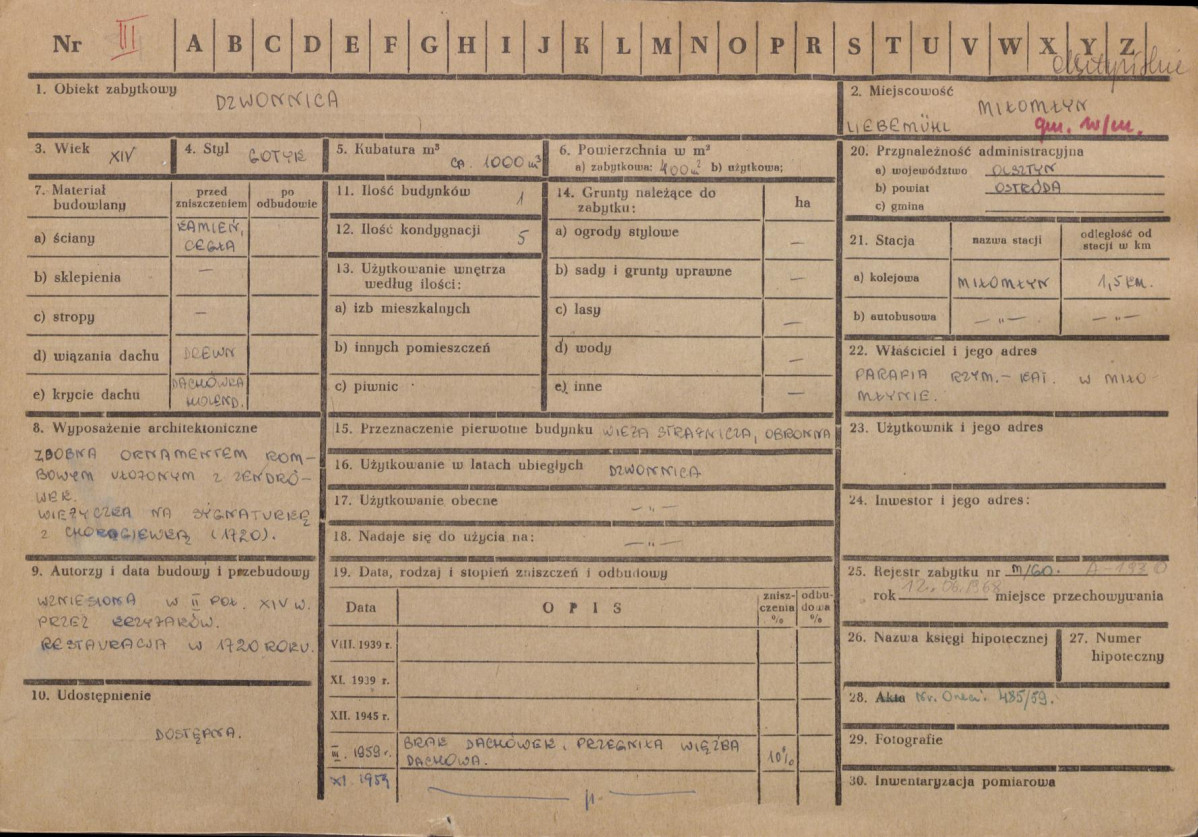 Nr III A B C D E F G H I J K L M N O P R S T U V W X Y Z
olsztyńskie
1. Obiekt zabytkowy
DZWONNICA
2. Miejscowość
MIŁOMŁYN
LIEBEMÜHL gm. w/m.
3. Wiek XIV
4. Styl GOTYK
5. Kubatura m³ CA. 1000 m³
6. Powierzchnia w m²
a) zabytkowa: 400 m² b) użytkowa:
20. Przynależność administracyjna
a) województwo OLSZTYN
b) powiat OSTRÓDA
c) gmina
7. Materiał budowlany
przed zniszczeniem
po odbudowie
a) ściany KAMIEŃ, CEGŁA
b) sklepienia —
c) stropy —
d) wiązania dachu DREWN
e) krycie dachu DACHÓWKA HOLEND.
11. Ilość budynków 1
12. Ilość kondygnacji 5
13. Użytkowanie wnętrza według ilości:
a) izb mieszkalnych
b) innych pomieszczeń
c) piwnic
14. Grunty należące do zabytku: ha
a) ogrody stylowe —
b) sady i grunty uprawne —
c) lasy —
d) wody —
e) inne —
21. Stacja
nazwa stacji
odległość od stacji w km
a) kolejowa MIŁOMŁYN 1,5 KM.
b) autobusowa — „ — — „ —
22. Właściciel i jego adres
PARAFIA RZYM.-KAT. W MIŁO
MŁYNIE.
8. Wyposażenie architektoniczne
ZDOBNA ORNAMENTEM ROM-
BOWYM UŁOŻONYM Z ZENDRÓ-
WEK.
WIEŻYCZKA NA SYGNATURKĘ
Z CHORĄGIEWKĄ (1720).
15. Przeznaczenie pierwotne budynku WIEŻA STRAŻNICZA, OBRONNA
16. Użytkowanie w latach ubiegłych DZWONNICA
17. Użytkowanie obecne — „ —
18. Nadaje się do użycia na: — „ —
23. Użytkownik i jego adres
24. Inwestor i jego adres:
9. Autorzy i data budowy i przebudowy
WZNIESIONA W II POŁ. XIV W.
PRZEZ KRZYŻAKÓW.
RESTAURACJA W 1720 ROKU.
10. Udostępnienie
DOSTĘPNA.
19. Data, rodzaj i stopień zniszczeń i odbudowy
Data OPIS zniszczenia % odbudowa %
VIII. 1939 r.
XI. 1939 r.
XII. 1945 r.
III. 1959 r. BRAK DACHÓWEK, PRZEGNIŁA WIĘŹBA
DACHOWA. 10%
XI. 1959 — „ —
25. Rejestr zabytku nr M/60.
rok 12. 06. 1968 miejsce przechowywania
26. Nazwa księgi hipotecznej
27. Numer hipoteczny
28. Akta 485/59.
29. Fotografie
30. Inwentaryzacja pomiarowa